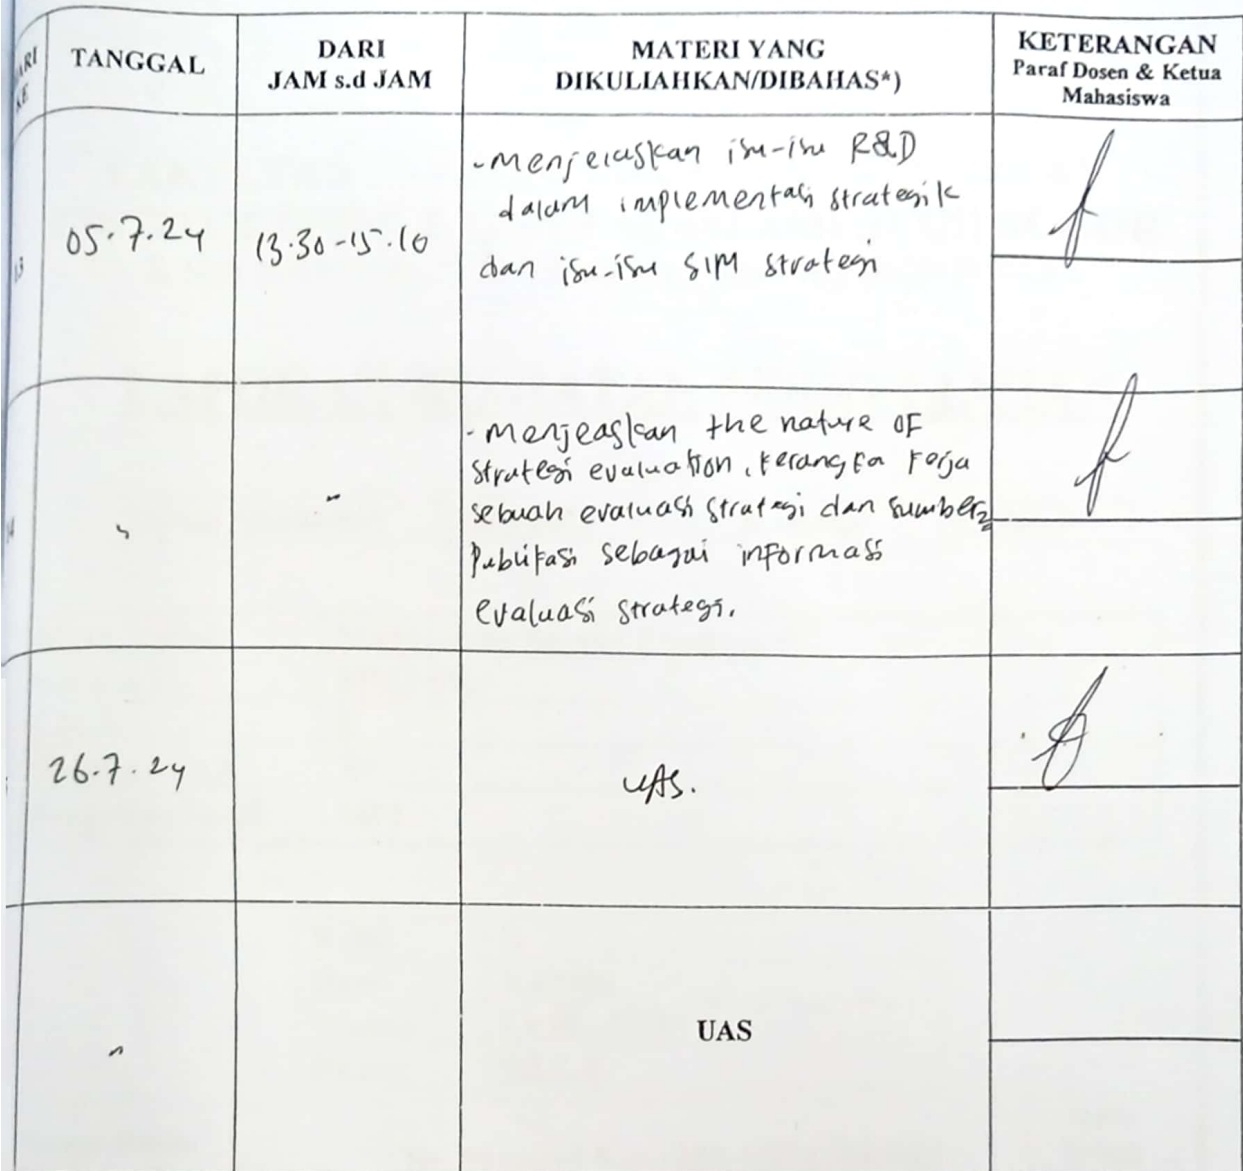 ARI
KE
TANGGAL
DARI
JAM s.d JAM
MATERI YANG
DIKULIAHKAN/DIBAHAS*)
KETERANGAN
Paraf Dosen & Ketua
Mahasiswa
13
05.7.24
13.30-15.10
- Menjelaskan isu-isu R&D
dalam implementasi strategik
dan isu-isu SIM strategi
4
- Menjeaskan the nature of
strategi evaluation, kerangka kerja
sebuah evaluasi strategi dan sumber2
Publikasi sebagai informasi
evaluasi strategi.
26.7.24
UAS.
UAS